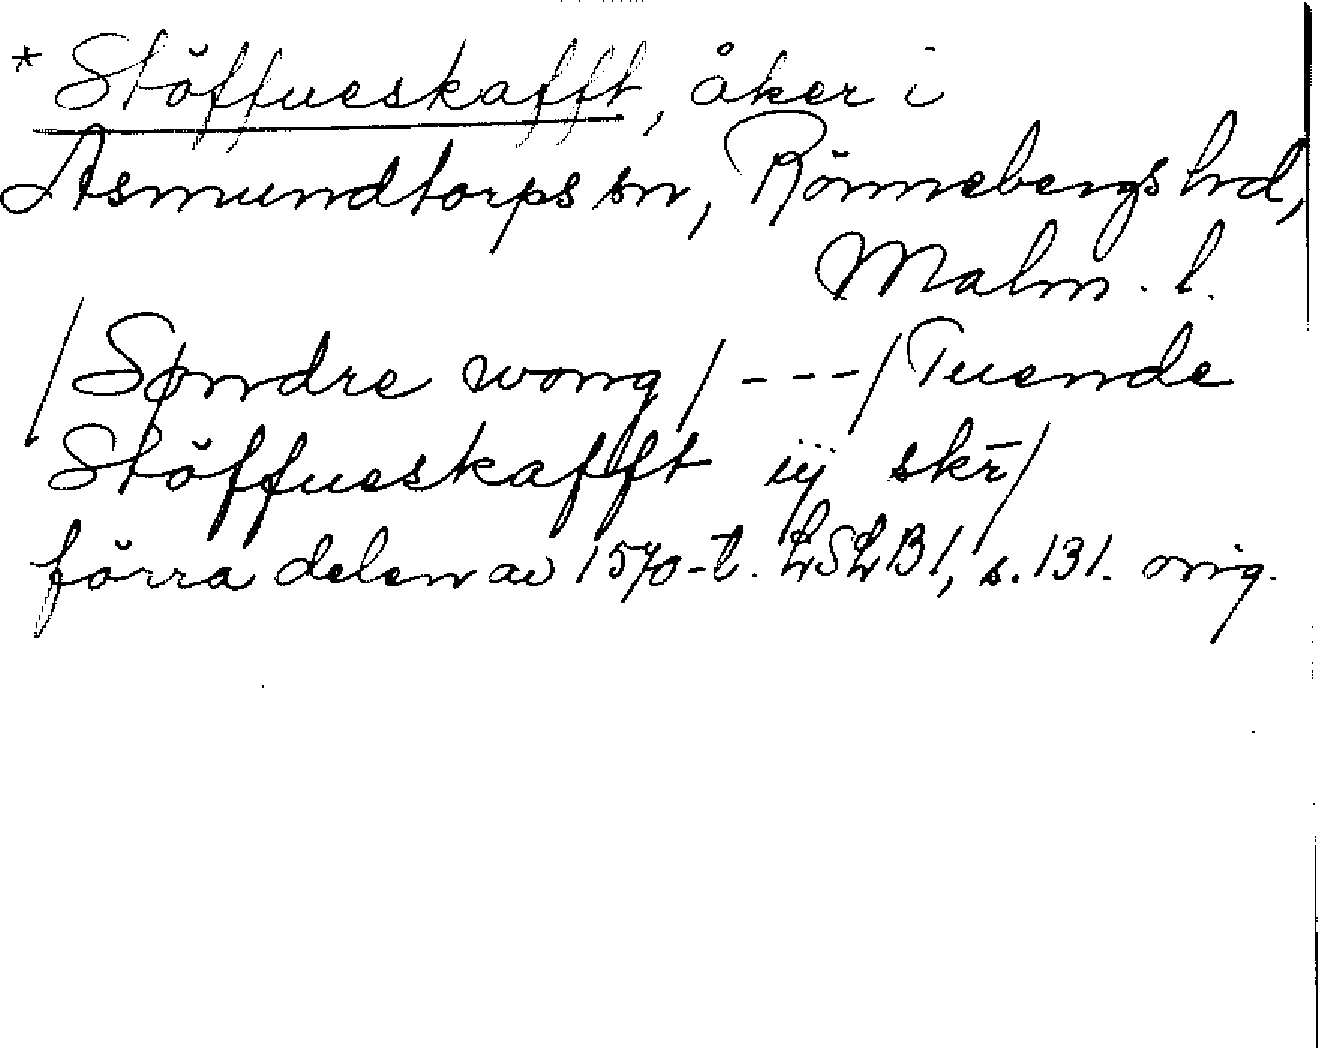 * Stöffueskafft, åker i
Asmundtorps sn, Rönnebergs hrd,
Malm. l.
/Søndre wong/ - - - /Tuende
Stöffueskafft iij skr̄/
förra delen av 1570-t. LSLB1, s. 131. orig.